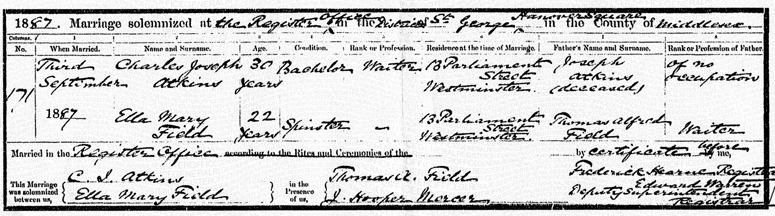 1887. Marriage solemnized at the Register Office in the District of St George Hanover Square in the County of Middlesex
Columns.
No. When Married. Name and Surname. Age. Condition. Rank or Profession. Residence at the time of Marriage. Father's Name and Surname. Rank or Profession of Father.
171
Third September 1887
Charles Joseph Atkins
30 years
Bachelor
Waiter
13 Parliament Street Westminster
Joseph Atkins (deceased)
of no occupation
Ella Mary Field
22 years
Spinster
—
13 Parliament Street Westminster
Thomas Alfred Field
Waiter
Married in the Register Office according to the Rites and Ceremonies of the by certificate before by me,
This Marriage was solemnized between us,
C. J. Atkins
Ella Mary Field
in the Presence of us,
Thomas A. Field
J. Hooper Mercer
Frederick Hearn Registrar
Edward
Deputy Superintendent
Registrar